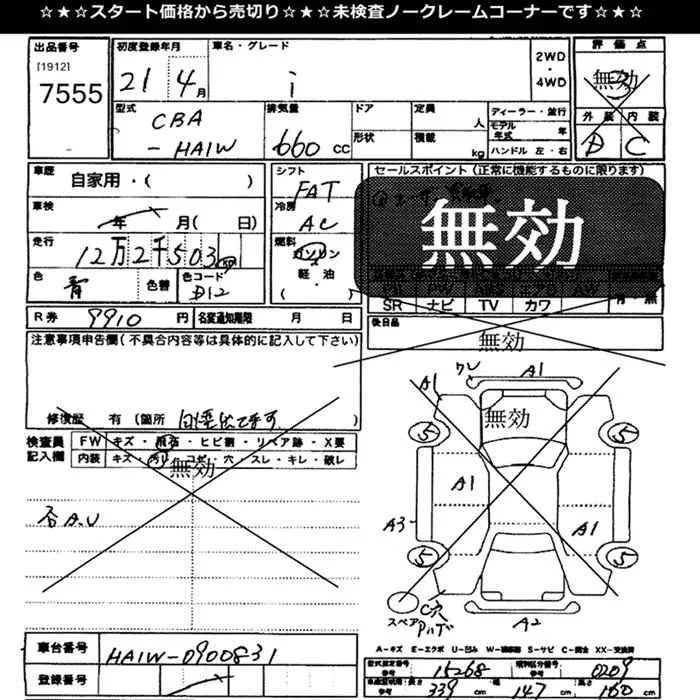 ☆★☆★スタート価格から売切り☆★☆★未検査ノークレームコーナーです☆★☆
出品番号 初度登録年月 車名・グレード 2WD・4WD 評価点
[1912] 7555 21 4月 i 無効
外装 内装
D C
型式 排気量 ドア 定員 人 ディーラー・並行
CBA-HA1W 660cc 形状 積載 kg モデル年式 年
ハンドル 左・右
車歴 自家用・( ) シフト FAT セールスポイント(正常に機能するものに限ります)
車検 年 月( 日) 冷房 AC 無効
走行 12万2千503 燃料 ガソリン
色 青 色替 色コード D12 軽・油 ( )
SR ナビ TV カワ
R券 9910円 名変通知期限 月 日 後日品
無効
注意事項申告欄(不具合内容等は具体的に記入して下さい)
修復歴 有(箇所 自走伝できます
検査員記入欄 FW キズ・飛石・ヒビ割・リペア跡・X要
内装 キズ・汚れ・コゲ・穴・スレ・キレ・破レ
無効
否A.U
ワレ A1
A1
無効
5 5
A1
A3 A1
5 5
スペア C穴
A2
A-キズ E-エクボ U-凹ミ W-補修跡 S-サビ C-腐食 XX-交換済
車台番号 HA1W-0900831
登録番号
型式指定番号 参考 15268 類別区分番号 参考 0209
車両登録用 参考 長さ 339cm 幅 147cm 高さ 160cm